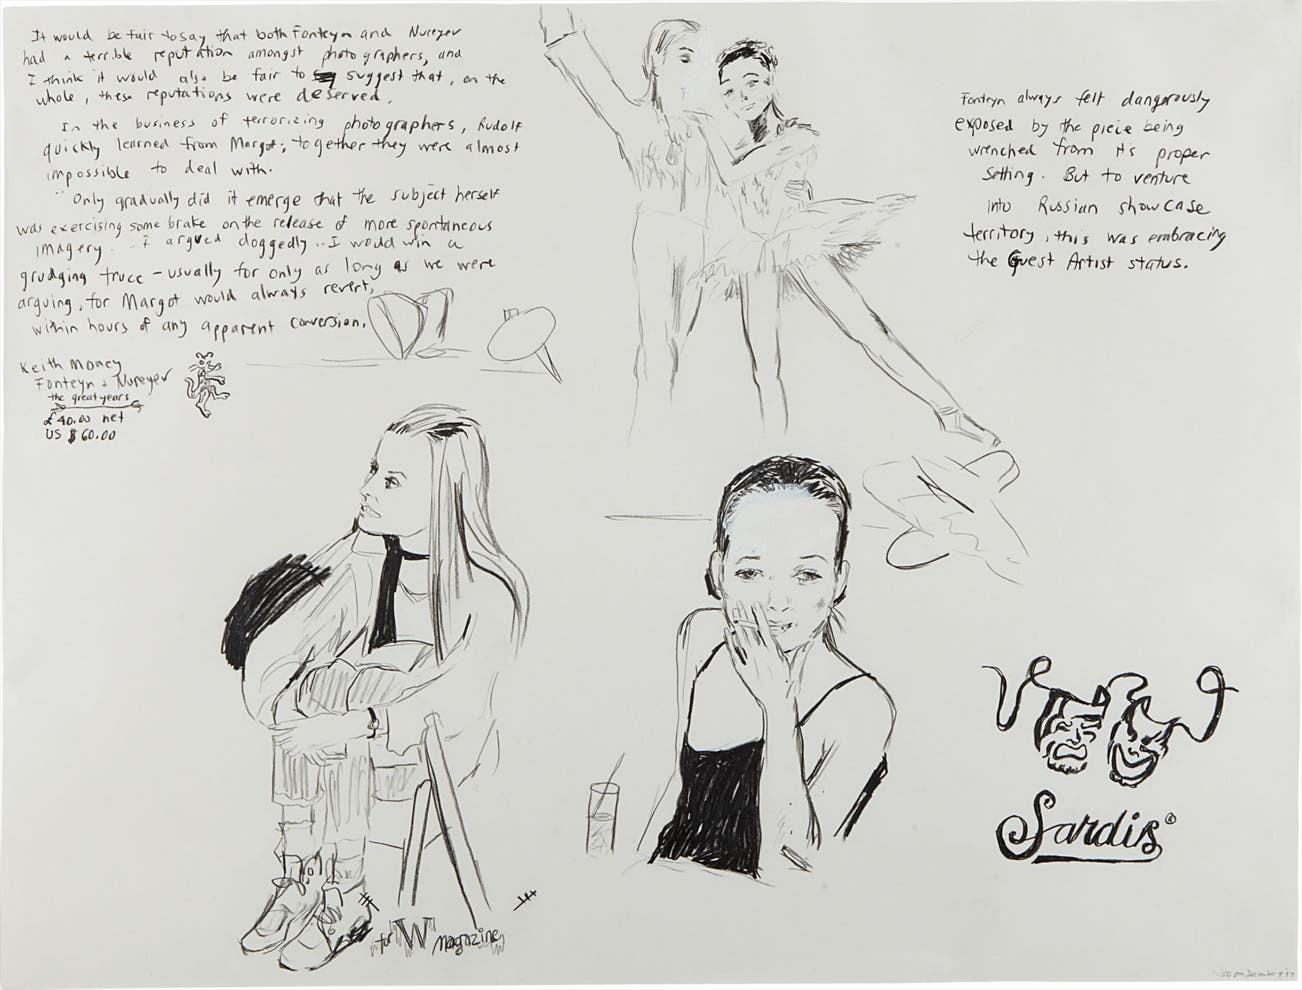 It would be fair to say that both Fonteyn and Nureyev
had a terrible reputation amongst photographers, and
I think it would also be fair to suggest that, on the
whole, these reputations were deserved.
In the business of terrorizing photographers, Rudolf
quickly learned from Margot; together they were almost
impossible to deal with.
Only gradually did it emerge that the subject herself
was exercising some brake on the release of more spontaneous
imagery... I argued doggedly.. I would win a
grudging truce - usually for only as long as we were
arguing, for Margot would always revert,
within hours of any apparent conversion.
Keith Money
Fonteyn & Nureyev
the great years
£40.00 net
US $60.00
Fonteyn always felt dangerously
exposed by the piece being
wrenched from its proper
setting. But to venture
into Russian showcase
territory, this was embracing
the Guest Artist status.
for W magazine
Sardis®